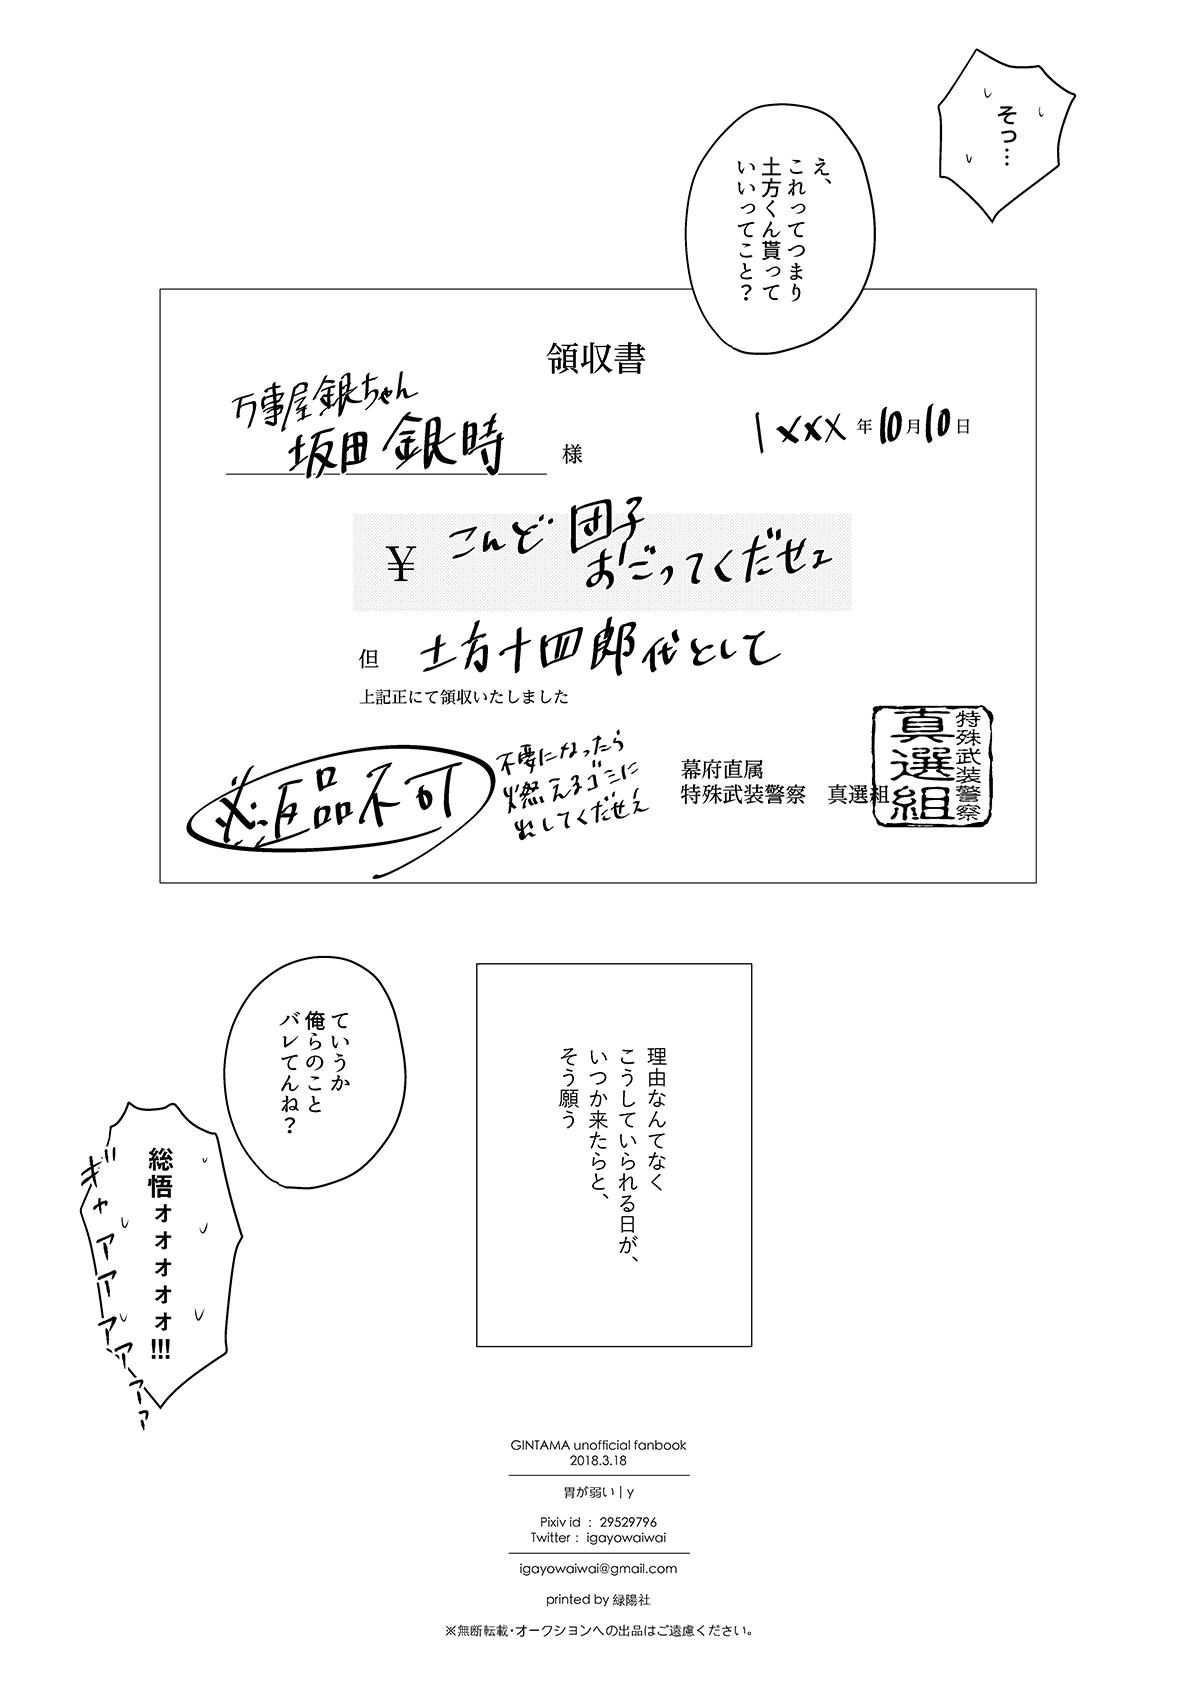 そっ…
え、
これってつまり
土方くん貰って
いいってこと？
領収書
万事屋銀ちゃん
坂田銀時 様
1xxx年10月10日
¥ こんど団子
おごってくだせェ
但 土方十四郎代として
上記正にて領収いたしました
※返品不可
不要になったら
燃えるゴミに
出してくだせえ
幕府直属
特殊武装警察 真選組
特殊武装警察
真選組
理由なんてなく
こうしていられる日が、
いつか来たらと、
そう願う
ていうか
俺らのこと
バレてんね？
総悟ォォォォォ!!!
ギャアアアアーァァ
GINTAMA unofficial fanbook
2018.3.18
胃が弱い | y
Pixiv id : 29529796
Twitter : igayowaiwai
igayowaiwai@gmail.com
printed by 緑陽社
※無断転載・オークションへの出品はご遠慮ください。